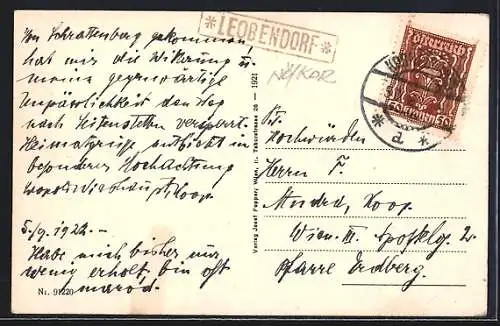 Von Schrattenberg gekommen,
hat mir die Witterung u.
meine gegenwärtige
Unpässlichkeit den Weg
nach Seitenstetten versperrt.
Heimatgrüße entbietet in
besonderer Hochachtung
5./9. 1922.–
Habe mich bisher nur
wenig erholt, bin oft
marod.
Nr. 91220
* LEOBENDORF *
NÖ/KOR
Verlag Josef Popper, Wien, II. 1921
Österreich
a
Hochwürden
Herrn F.
Koop.
Wien. III. Apostelg. 2.
Pfarre Erdberg.